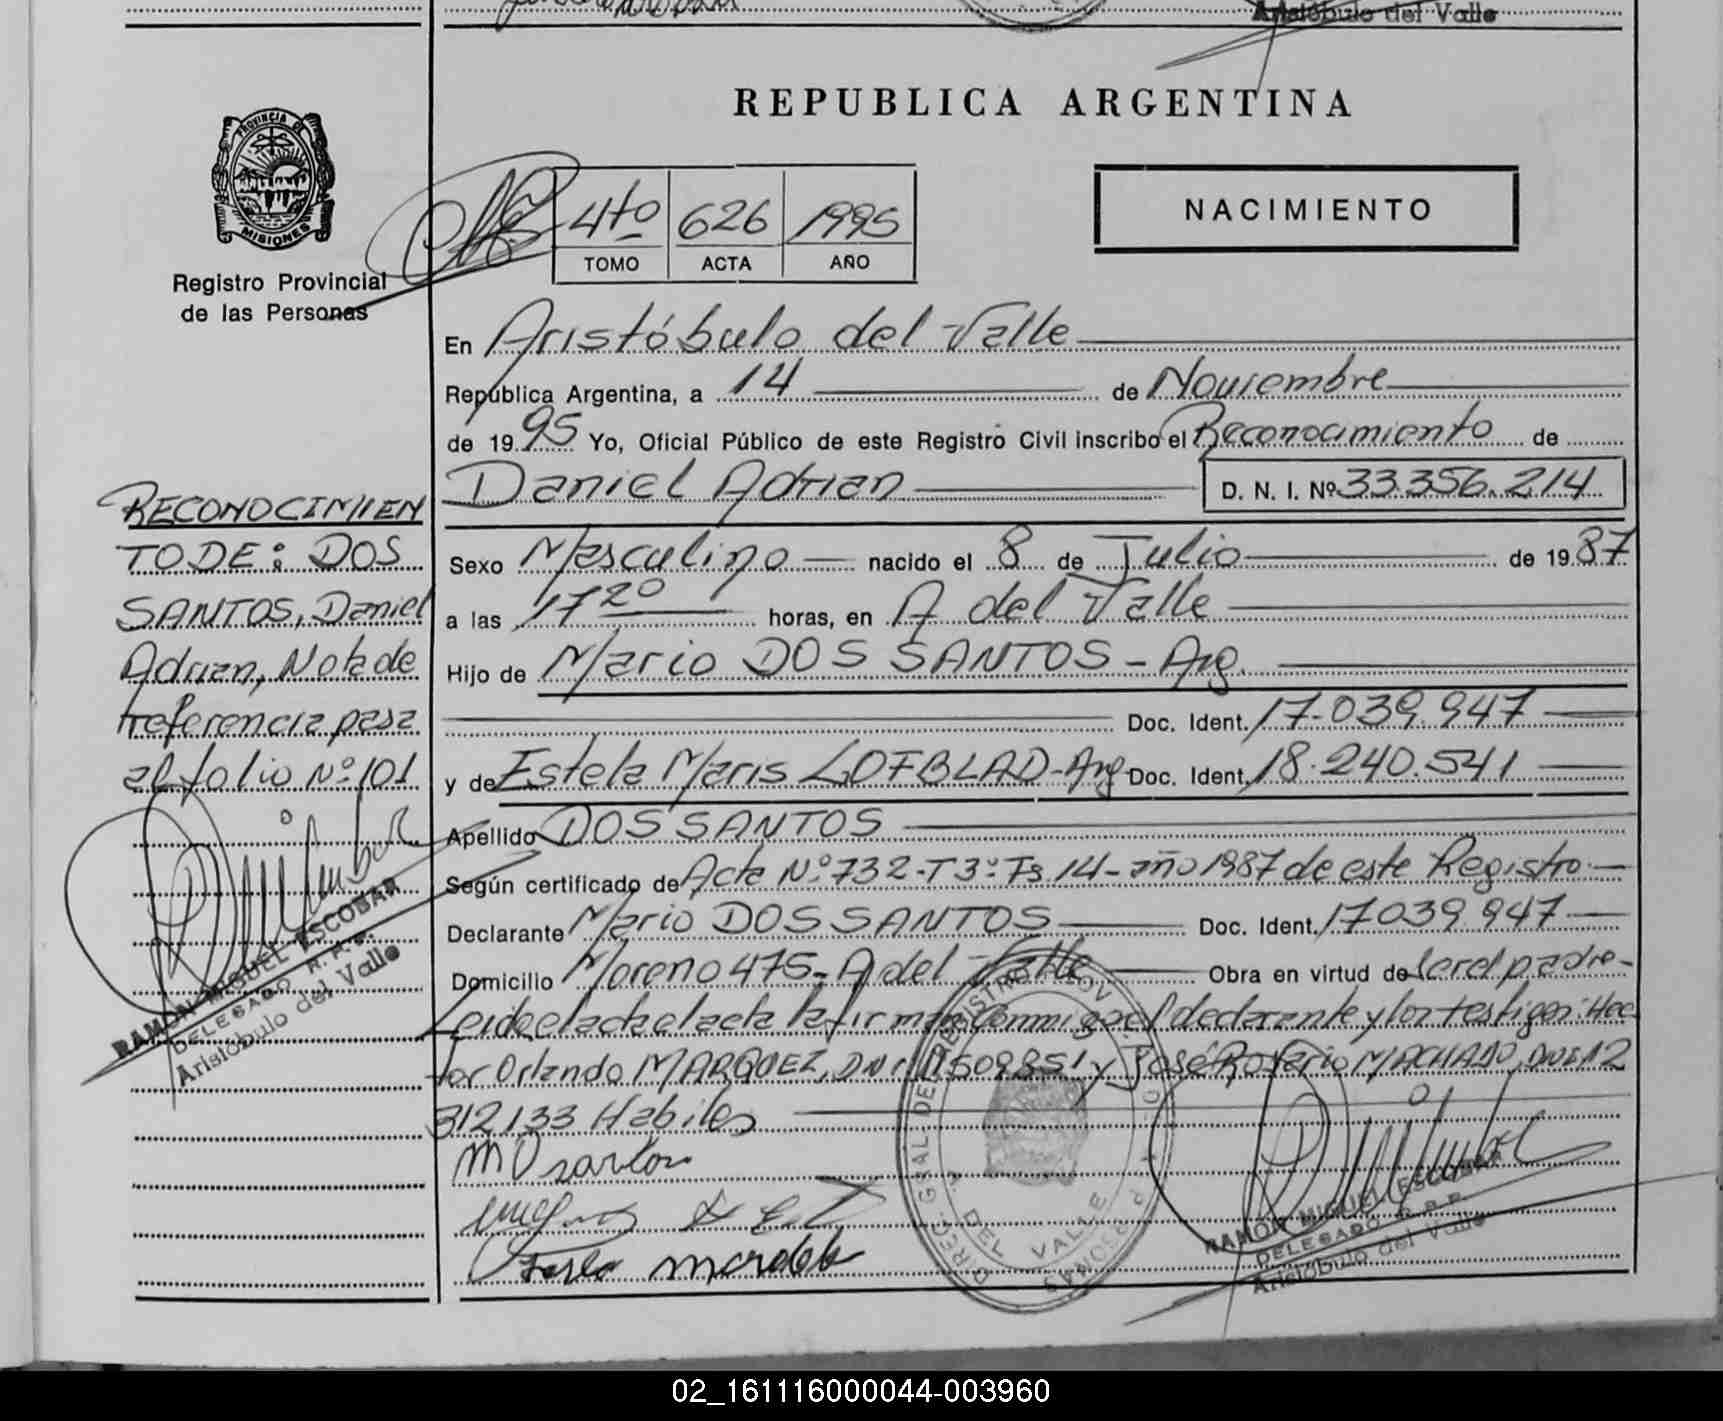 Aristóbulo del Valle
REPUBLICA ARGENTINA
PROVINCIA DE
MISIONES
Registro Provincial
de las Personas
4to 626 1995
TOMO ACTA AÑO
NACIMIENTO
En Aristóbulo del Valle
República Argentina, a 14 de Noviembre
de 1995 Yo, Oficial Público de este Registro Civil inscribo el Reconocimiento de
Daniel Adrian D. N. I. Nº 33.356.214
Sexo Masculino nacido el 8 de Julio de 1987
a las 17 20 horas, en A del Valle
Hijo de Mario DOS SANTOS - Arg.
Doc. Ident. 17.039.947
y de Estela Maris LOFBLAD - Arg Doc. Ident. 18.240.541
Apellido DOS SANTOS
Según certificado de Acta Nº 732 - T 3º Fs 14 - año 1987 de este Registro
Declarante Mario DOS SANTOS Doc. Ident. 17039.947
Domicilio Moreno 475 - A del Valle Obra en virtud de ser el padre -
Leida el acta el acta la firman conmigo el declarante y los testigos: Hec
tor Orlando MARQUEZ, DNI 11509851 y José Rosario MACHADO, DNI 12
312133 Habiles
RECONOCIMIEN
TO DE: DOS
SANTOS, Daniel
Adrian, Nota de
referencia pasa
al folio Nº 101
RAMON MIGUEL ESCOBAR
DELEGADO R. P. P.
Aristóbulo del Valle
DEL VALLE
RAMON MIGUEL ESCOBAR
DELEGADO R. P. P.
Aristóbulo del Valle
02_161116000044-003960